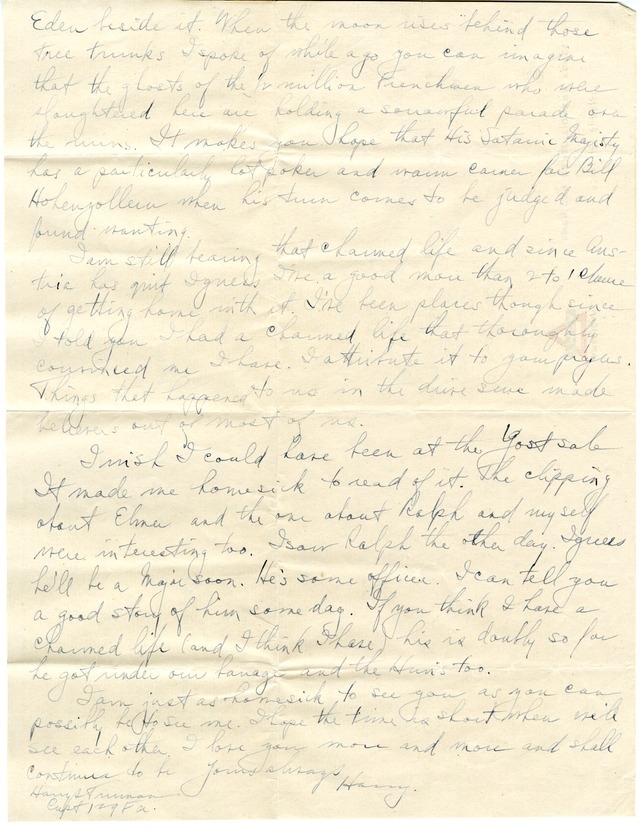 Eden beside it. When the moon rises behind those
tree trunks I spoke of while ago you can imagine
that the ghosts of the ½ million Frenchmen who were
slaughtered here are holding a sorrowful parade over
the ruins. It makes you hope that His Satanic Majisty
has a particularly hot poker and warm corner for Bill
Hohenzollern when his turn comes to be judged and
found wanting.
I am still bearing that charmed life and since Aus-
tria has quit I guess I've a good more than 2 to 1 chance
of getting home with it. I've been places though since
I told you I had a charmed life that thoroughly
convinced me I have. I attribute it to your prayers.
Things that happened to us in the drive sure made
believers out of most of us.
I wish I could have been at the Yost sale
It made me homesick to read of it. The clipping
about Elmer and the one about Ralph and myself
were interesting too. I saw Ralph the other day. I guess
he'll be a Major soon. He's some officer. I can tell you
a good story of him some day. If you think I have a
charmed life (and I think I have) his is doubly so for
he got under our barrage and the Hun's too.
I am just as homesick to see you as you can
possibly be to see me. I hope the time is short when we'll
see each other. I love you more and more and shall
continue to be Yours always
Harry.
Harry S Truman
Capt 129 F.A.